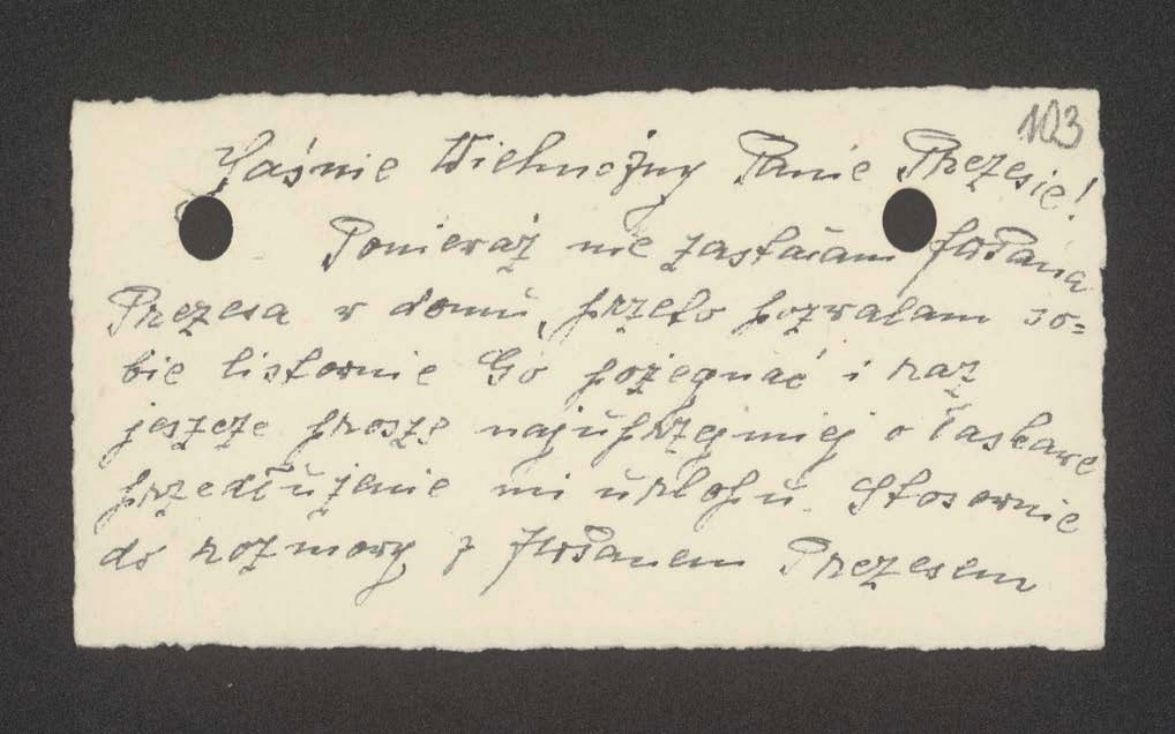 103
Jaśnie Wielmożny Panie Prezesie!
Ponieważ nie zastałam JWPana
Prezesa w domu, przeto pozwalam so=
bie listownie Go pożegnać i raz
jeszcze proszę najuprzejmiej o łaskawe
przedłużenie mi urlopu. Stosownie
do rozmowy z JWPanem Prezesem